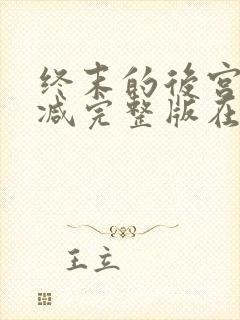 终末的后宫
减完整版在
王立